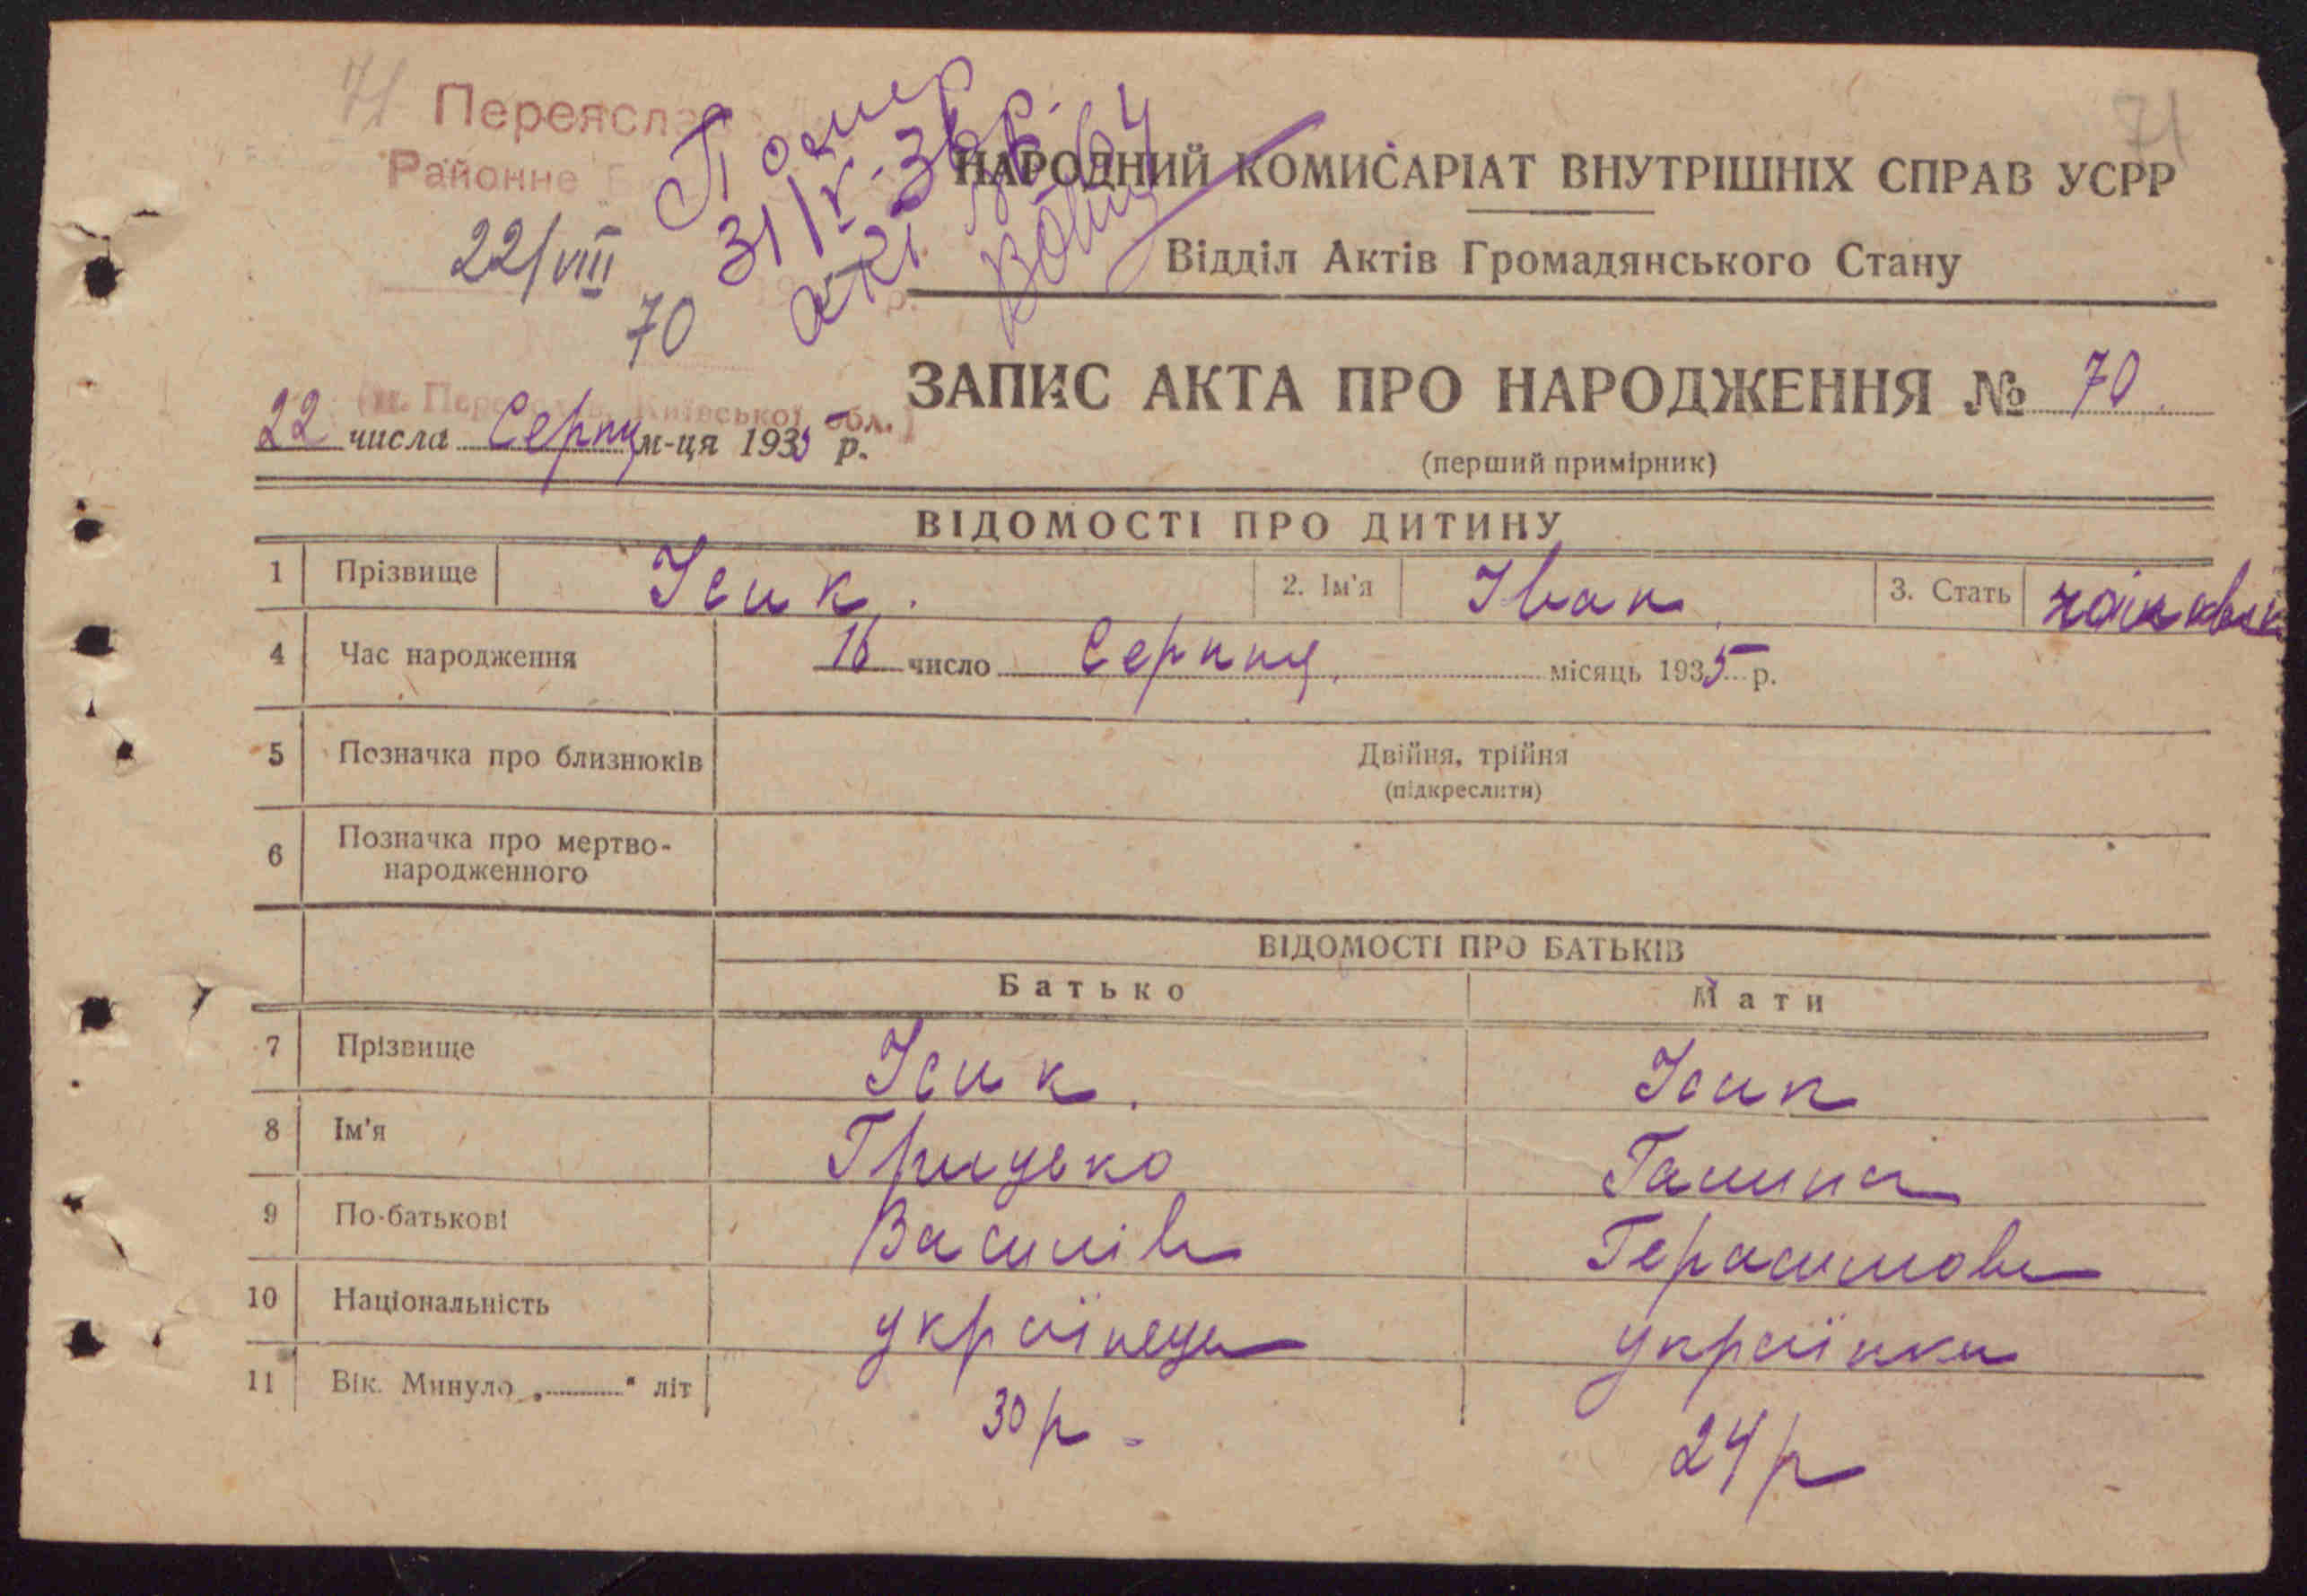 71 Переясл
Районне
Помер
31/V-36р.
акт
22/VIII
70
71
НАРОДНИЙ КОМІСАРІАТ ВНУТРІШНІХ СПРАВ УСРР
Відділ Актів Громадянського Стану
ЗАПИС АКТА ПРО НАРОДЖЕННЯ № 70
(перший примірник)
22 числа Серпня м-ця 1935 р.
ВІДОМОСТІ ПРО ДИТИНУ
1 Прізвище Усик. 2. Ім'я Іван 3. Стать
4 Час народження 16 число Серпня місяць 1935 р.
5 Позначка про близнюків Двійня, трійня
(підкреслити)
6 Позначка про мертво-
народженного
ВІДОМОСТІ ПРО БАТЬКІВ
Батько Мати
7 Прізвище Усик. Усик
8 Ім'я Грицько Галина
9 По-батькові Василів Герасимова
10 Національність українець українка
11 Вік. Минуло „ “ літ 30 р. 24 р